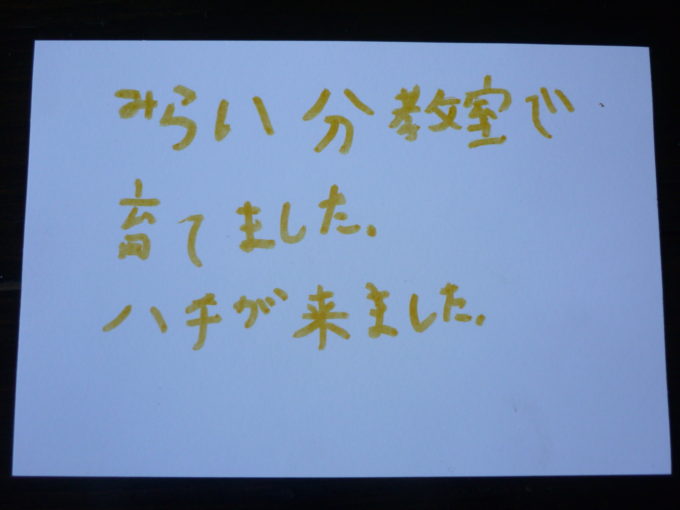 みらい分教室で
育てました.
ハチが来ました.